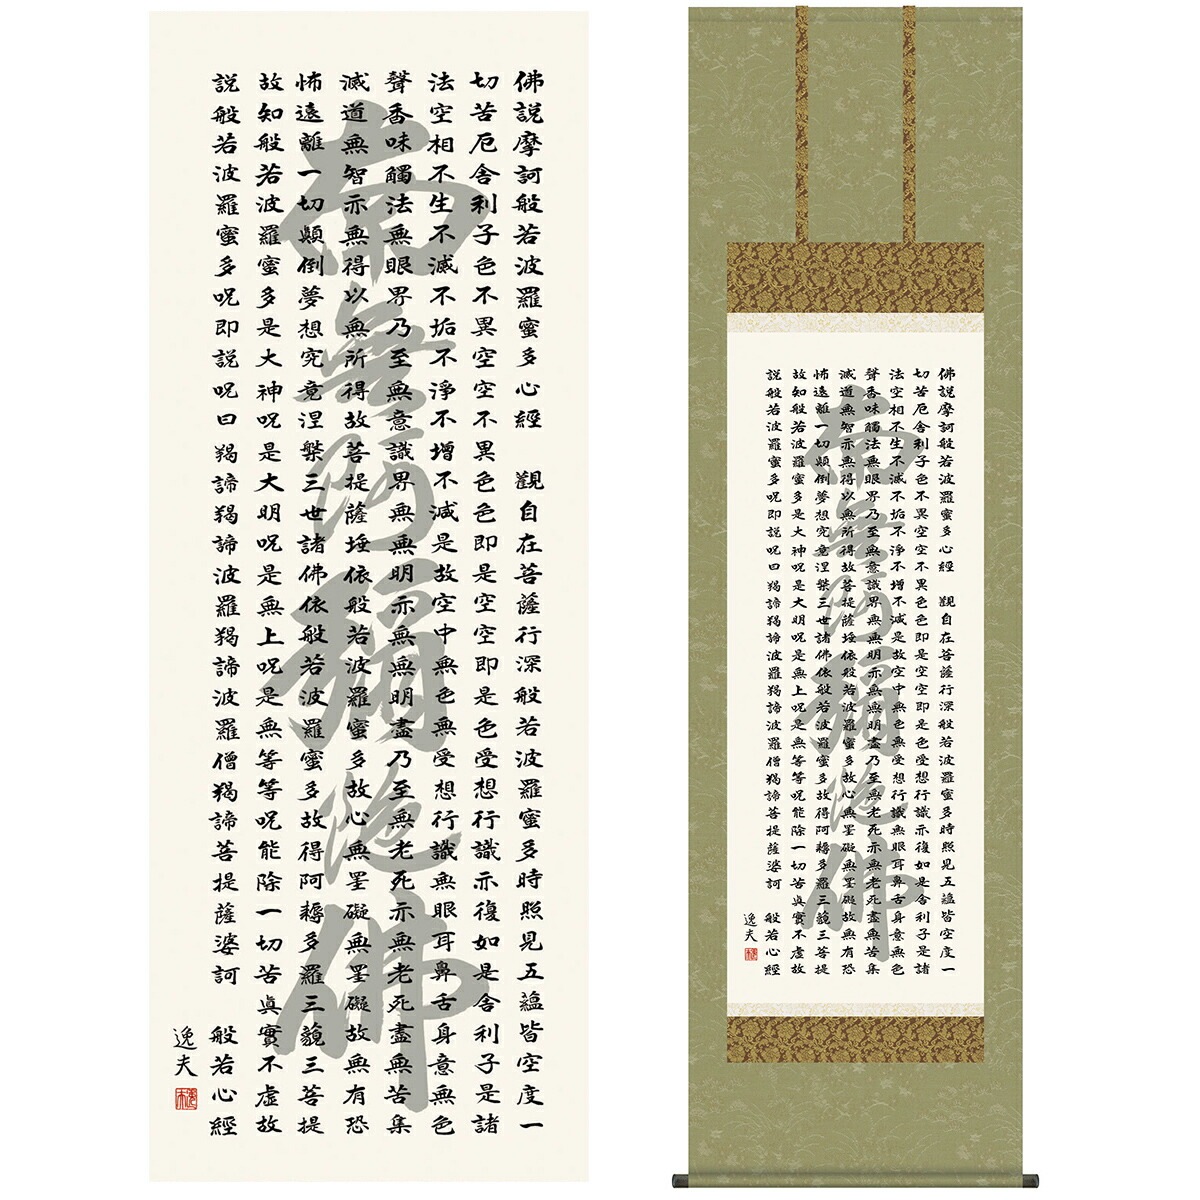 佛說摩訶般若波羅蜜多心經　觀自在菩薩行深般若波羅蜜多時照見五蘊皆空度一
切苦厄舎利子色不異空空不異色色即是空空即是色受想行識亦復如是舎利子是諸
法空相不生不滅不垢不淨不增不減是故空中無色無受想行識無眼耳鼻舌身意無色
聲香味觸法無眼界乃至無意識界無無明亦無無明盡乃至無老死亦無老死盡無苦集
滅道無智亦無得以無所得故菩提薩埵依般若波羅蜜多故心無罣礙無罣礙故無有恐
怖遠離一切顛倒夢想究竟涅槃三世諸佛依般若波羅蜜多故得阿耨多羅三藐三菩提
故知般若波羅蜜多是大神呪是大明呪是無上呪是無等等呪能除一切苦眞實不虛故
說般若波羅蜜多呪即說呪曰羯諦羯諦波羅羯諦波羅僧羯諦菩提薩婆訶　般若心經
逸夫
南無阿彌陀佛
佛說摩訶般若波羅蜜多心經　觀自在菩薩行深般若波羅蜜多時照見五蘊皆空度一
切苦厄舎利子色不異空空不異色色即是空空即是色受想行識亦復如是舎利子是諸
法空相不生不滅不垢不淨不增不減是故空中無色無受想行識無眼耳鼻舌身意無色
聲香味觸法無眼界乃至無意識界無無明亦無無明盡乃至無老死亦無老死盡無苦集
滅道無智亦無得以無所得故菩提薩埵依般若波羅蜜多故心無罣礙無罣礙故無有恐
怖遠離一切顛倒夢想究竟涅槃三世諸佛依般若波羅蜜多故得阿耨多羅三藐三菩提
故知般若波羅蜜多是大神呪是大明呪是無上呪是無等等呪能除一切苦眞實不虛故
說般若波羅蜜多呪即說呪曰羯諦羯諦波羅羯諦波羅僧羯諦菩提薩婆訶　般若心經
逸夫
南無阿彌陀佛